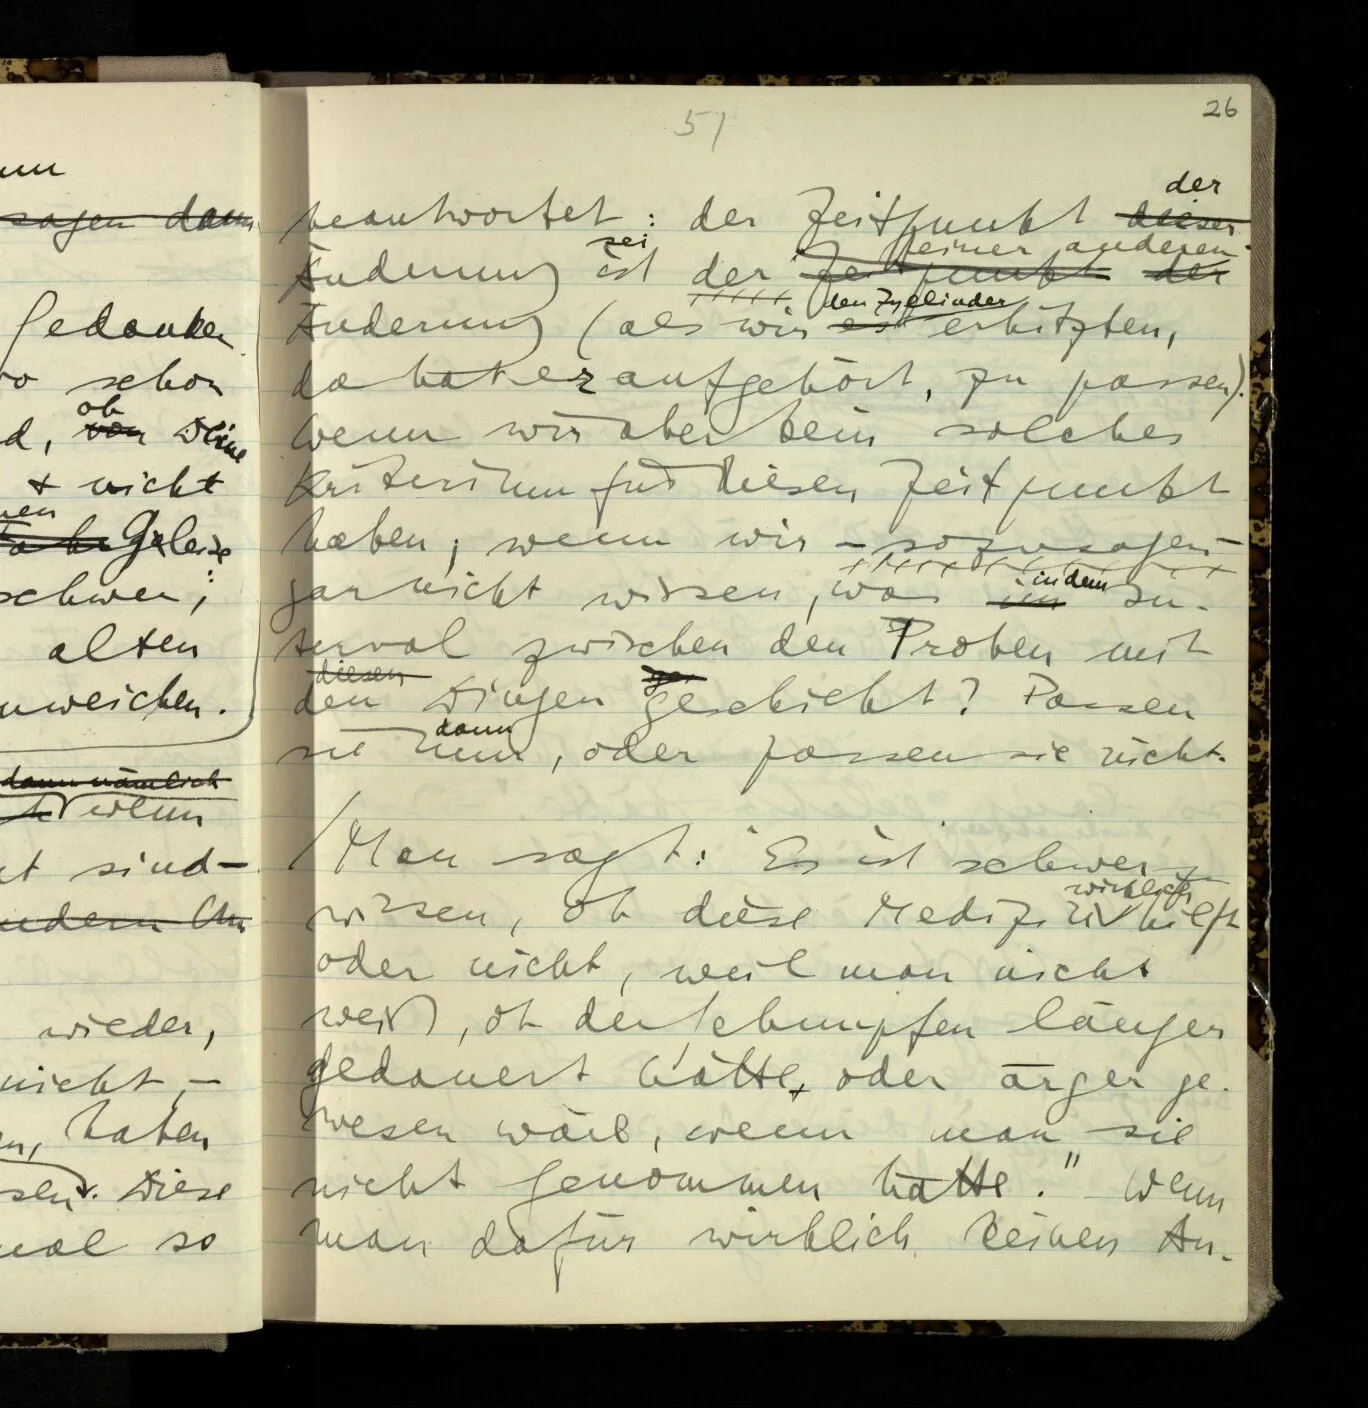 nn
sagen dann
Gedanken
so schon
ob
d, von Deine
+ nicht
nen
Geleise
schwer;
alten
uweichen.
dann nämlich
wenn
t sind –
ndern
wieder,
nicht, –
n, haben
sen. Diese
mal so
26
51
der
beantwortet: der Zeitpunkt dieser
sei einer anderen
Änderung ist der Zeitpunkt der
den Zylinder
Änderung (als wir es erhitzten,
da hat er aufgehört, zu passen).
Wenn wir aber kein solches
Kriterium für diesen Zeitpunkt
haben; wenn wir – sozusagen –
gar nicht wissen, was im in dem In-
terval zwischen den Proben mit
diesen
den Dingen ge geschieht? Passen
dann
sie nun, oder passen sie nicht.
/Man sagt: "Es ist schwer zu
wirklich
wissen, ob diese Medizin hilft
oder nicht, weil man nicht
weiß, ob der Schnupfen länger
gedauert hätte, oder ärger ge-
wesen wäre, wenn man sie
nicht genommen hätte." Wenn
man dafür wirklich keinen An-